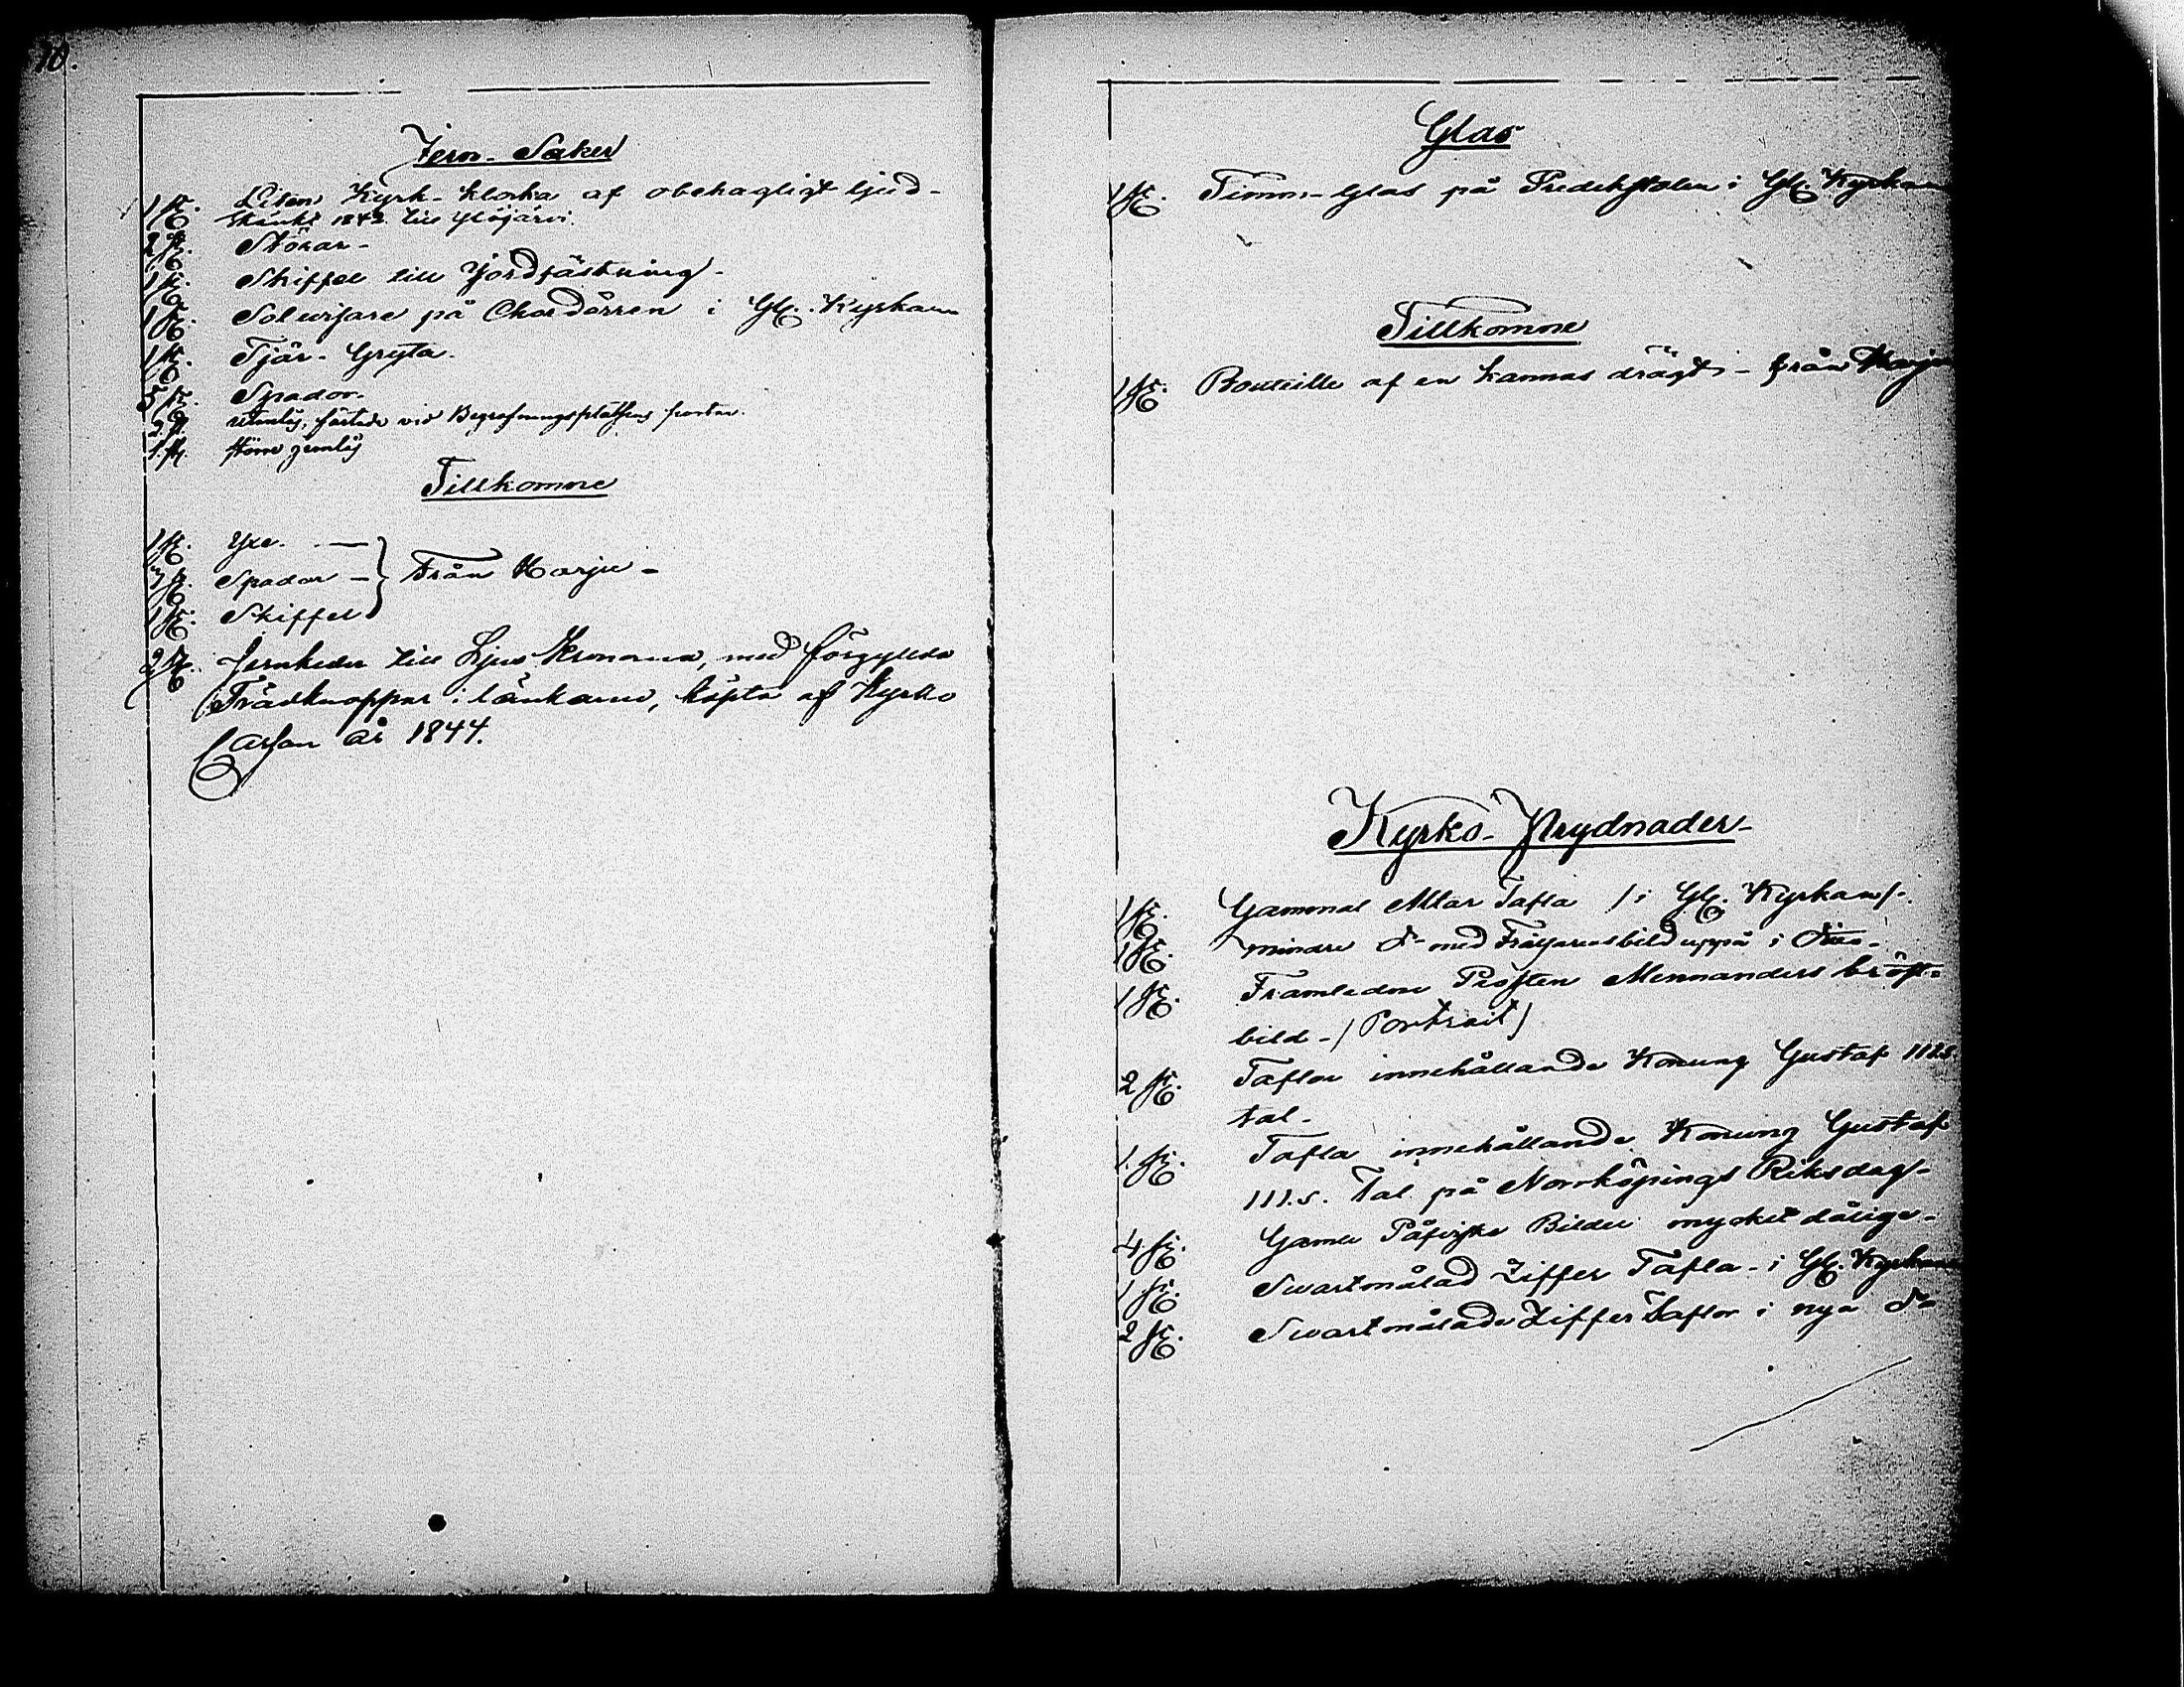 10.
Jern-Saker
1 st. Liten Kyrk-klocka af obehagligt ljud-
Skänkt 1842 till Ylöjärvi.
2 st. Störar-
1 st. Skiffel till Jordfästning-
1 st. Solwisare på Chordörren i Gl. Kyrkan
1 st. Tjär-Gryta.
5 st. Spador.
2 st. fästade vid Begrafningsplatsens portar.
1 st större
Tillkomne
1 st. Yxe. —
3 st. Spador — Från Harju-
1 st. Skiffel
2 st. Jernkedor till Ljus Kronorna, med förgyllda
Trädknoppar i länkarne, köpta af Kyrko
Cassan år 1844.
Glas
1 st. Timm-Glas på Predikstolen i Gl. Kyrkan
Tillkomne
1 st. Bouteille af en kannas drägt- från Harju
Kyrko-Prydnader-
1 st. Gammal Altar Tafla /i Gl. Kyrkan/.
1 st. mindre do med Frälsarens bild uppå i
1 st. Framledne Prosten Mennanders bröst-
bild-/Portrait/
2 st. Taflor innehållande Konung Gustaf IIIs
tal-
1. st. Tafla innehållande Konung Gustaf
III.s. Tal på Norrköpings Riksdag-
4 st. Gamla Påfviska Bilder mycket dåliga-
1 st. Swartmålad Ziffer Tafla-i Gl. Kyrkan
2 st. Swartmålade Ziffer Taflor i nya do